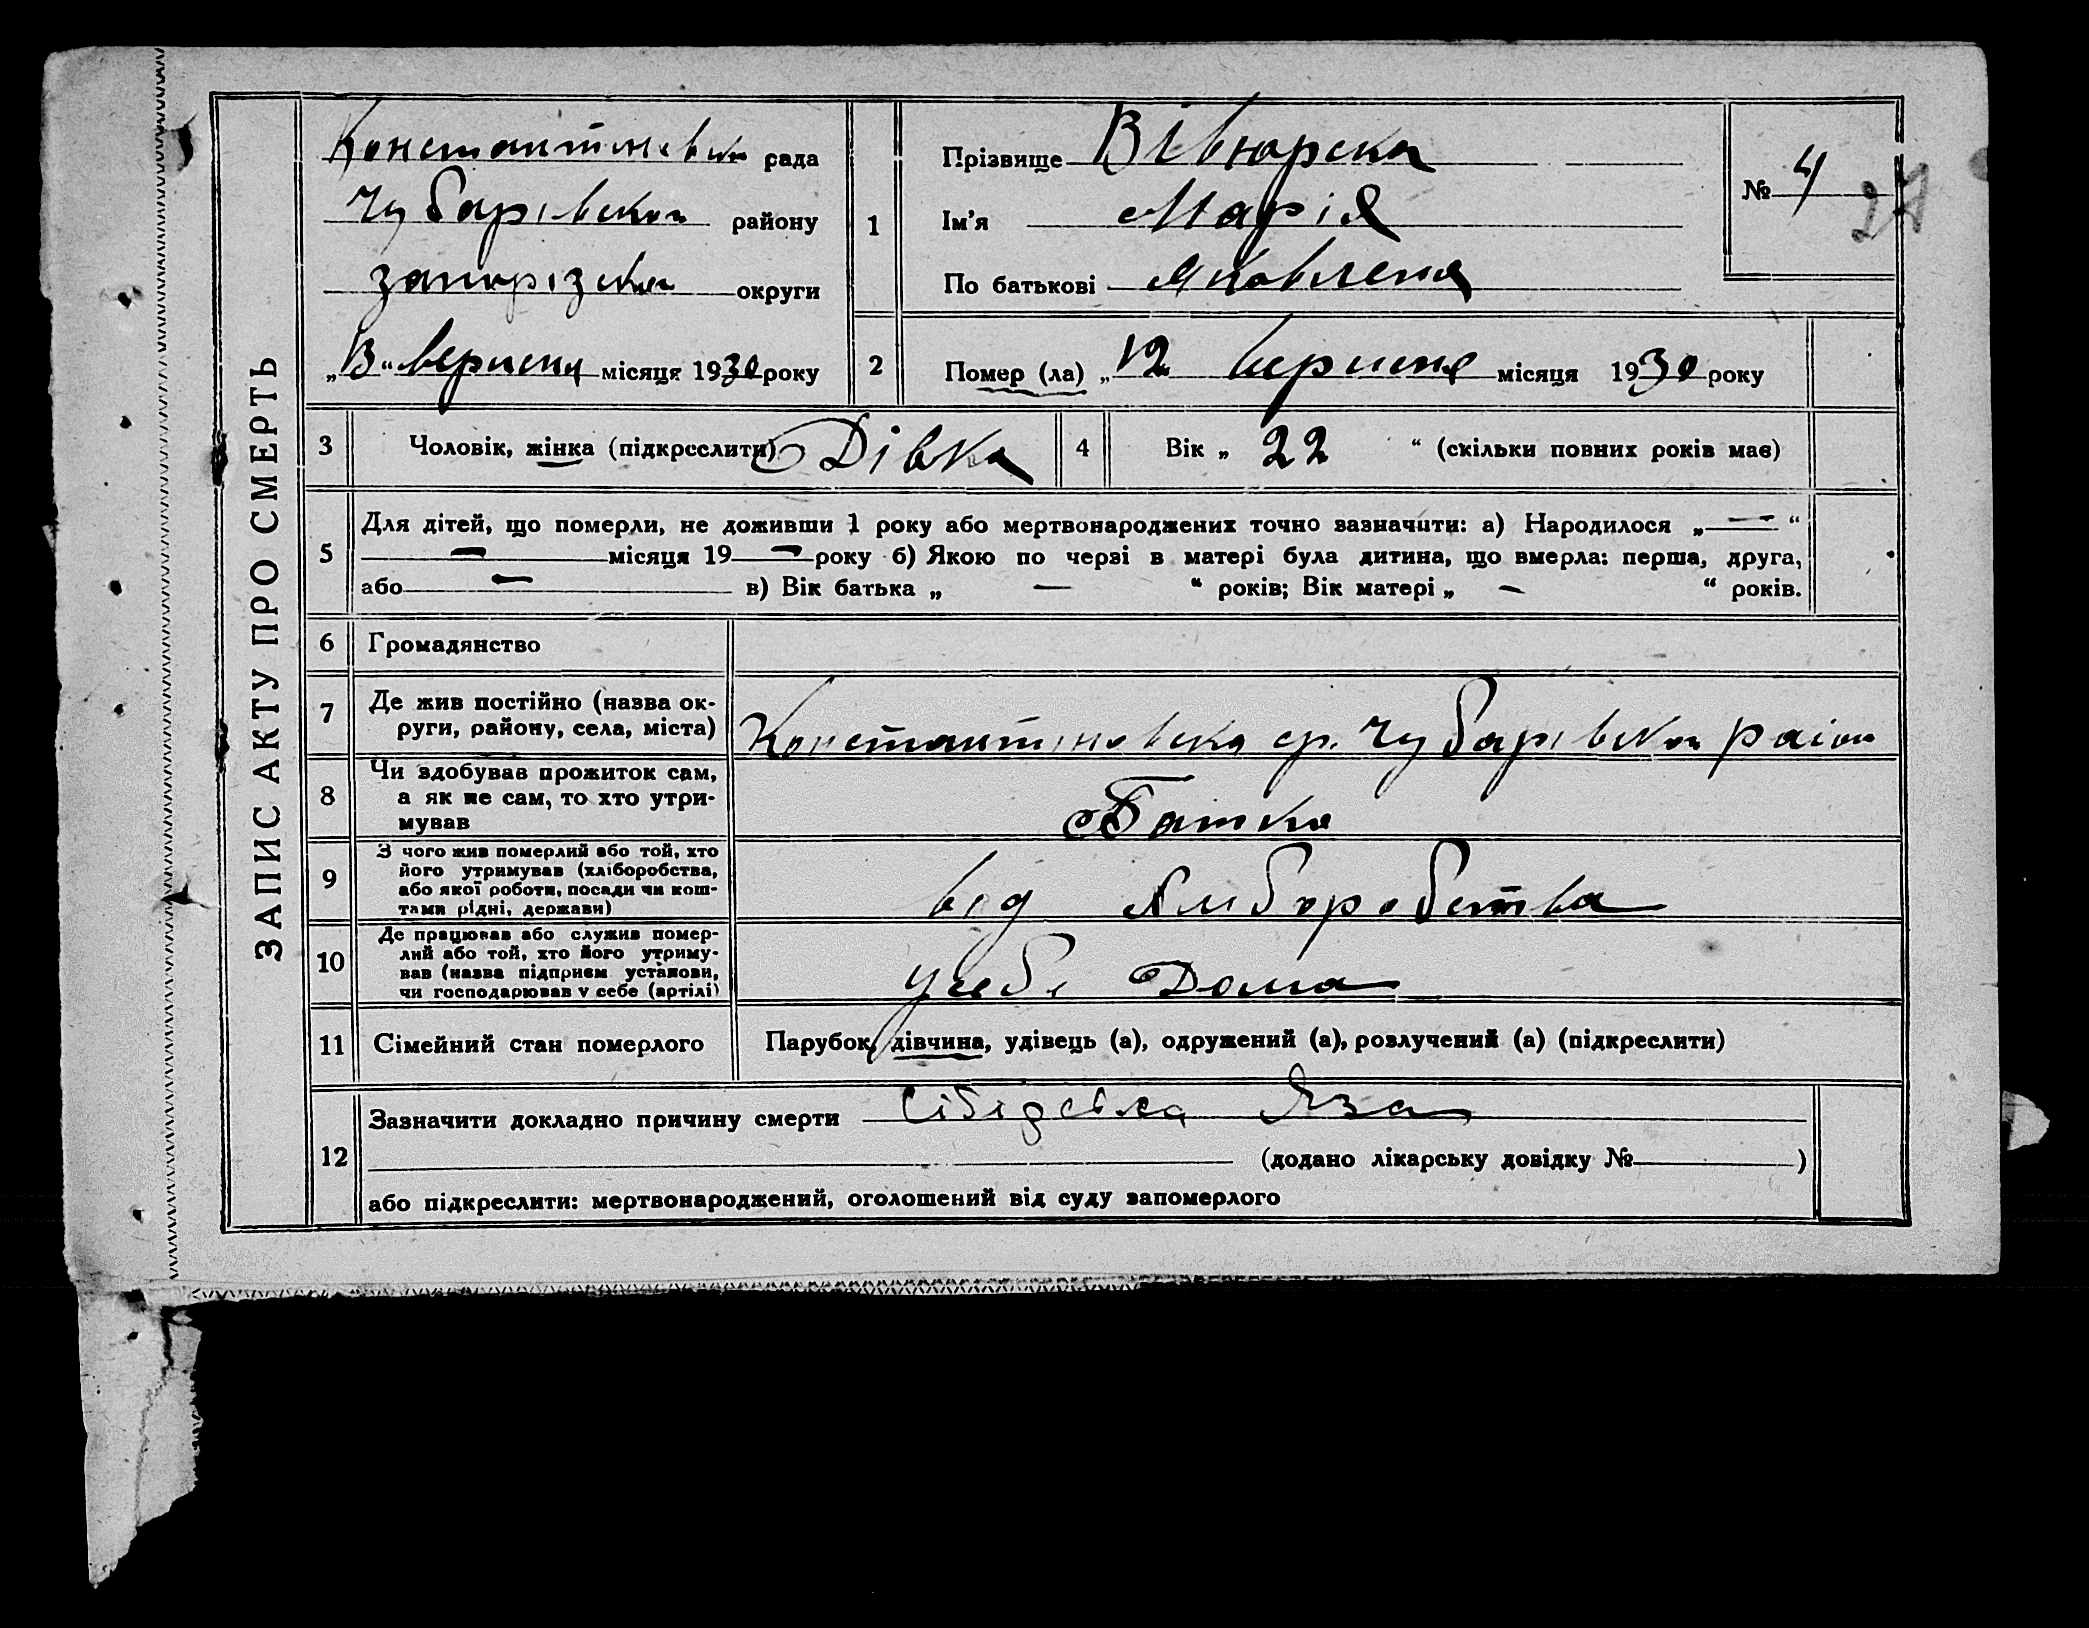 ЗАПИС АКТУ ПРО СМЕРТЬ
Константиновська рада
Чубарівського району
Запорізької округи
„13“ вересня місяця 1930 року
1
Прізвище Вівюрска
Ім'я Марія
По батькові Яковлена
№ 4
27
2
Помер (ла) „12 вересня місяця 1930 року
3 Чоловік, жінка (підкреслити) Дівка
4 Вік „ 22 “ (скільки повних років має)
5
Для дітей, що померли, не доживши 1 року або мертвонароджених точно зазначити: а) Народилося „ — “
— місяця 19 — року б) Якою по черзі в матері була дитина, що вмерла: перша, друга,
або — в) Вік батька „ — “ років; Вік матері „ — “ років.
6 Громадянство
7 Де жив постійно (назва ок-
руги, району, села, міста)
Константиновська ср. Чубарівського району
8 Чи здобував прожиток сам,
а як не сам, то хто утри-
мував
Батько
9 З чого жив померлий або той, хто
його утримував (хліборобства,
або якої роботи, посади чи кош-
тами рідні, держави)
від хліборобства
10 Де працював або служив помер-
лий або той, хто його утриму-
вав (назва підприєм установи,
чи господарював у себе (артілі)
у себе Дома
11 Сімейний стан померлого
Парубок, дівчина, удівець (а), одружений (а), розлучений (а) (підкреслити)
12 Зазначити докладно причину смерти Сібірська Яза
(додано лікарську довідку № )
або підкреслити: мертвонароджений, оголошений від суду запомерлого